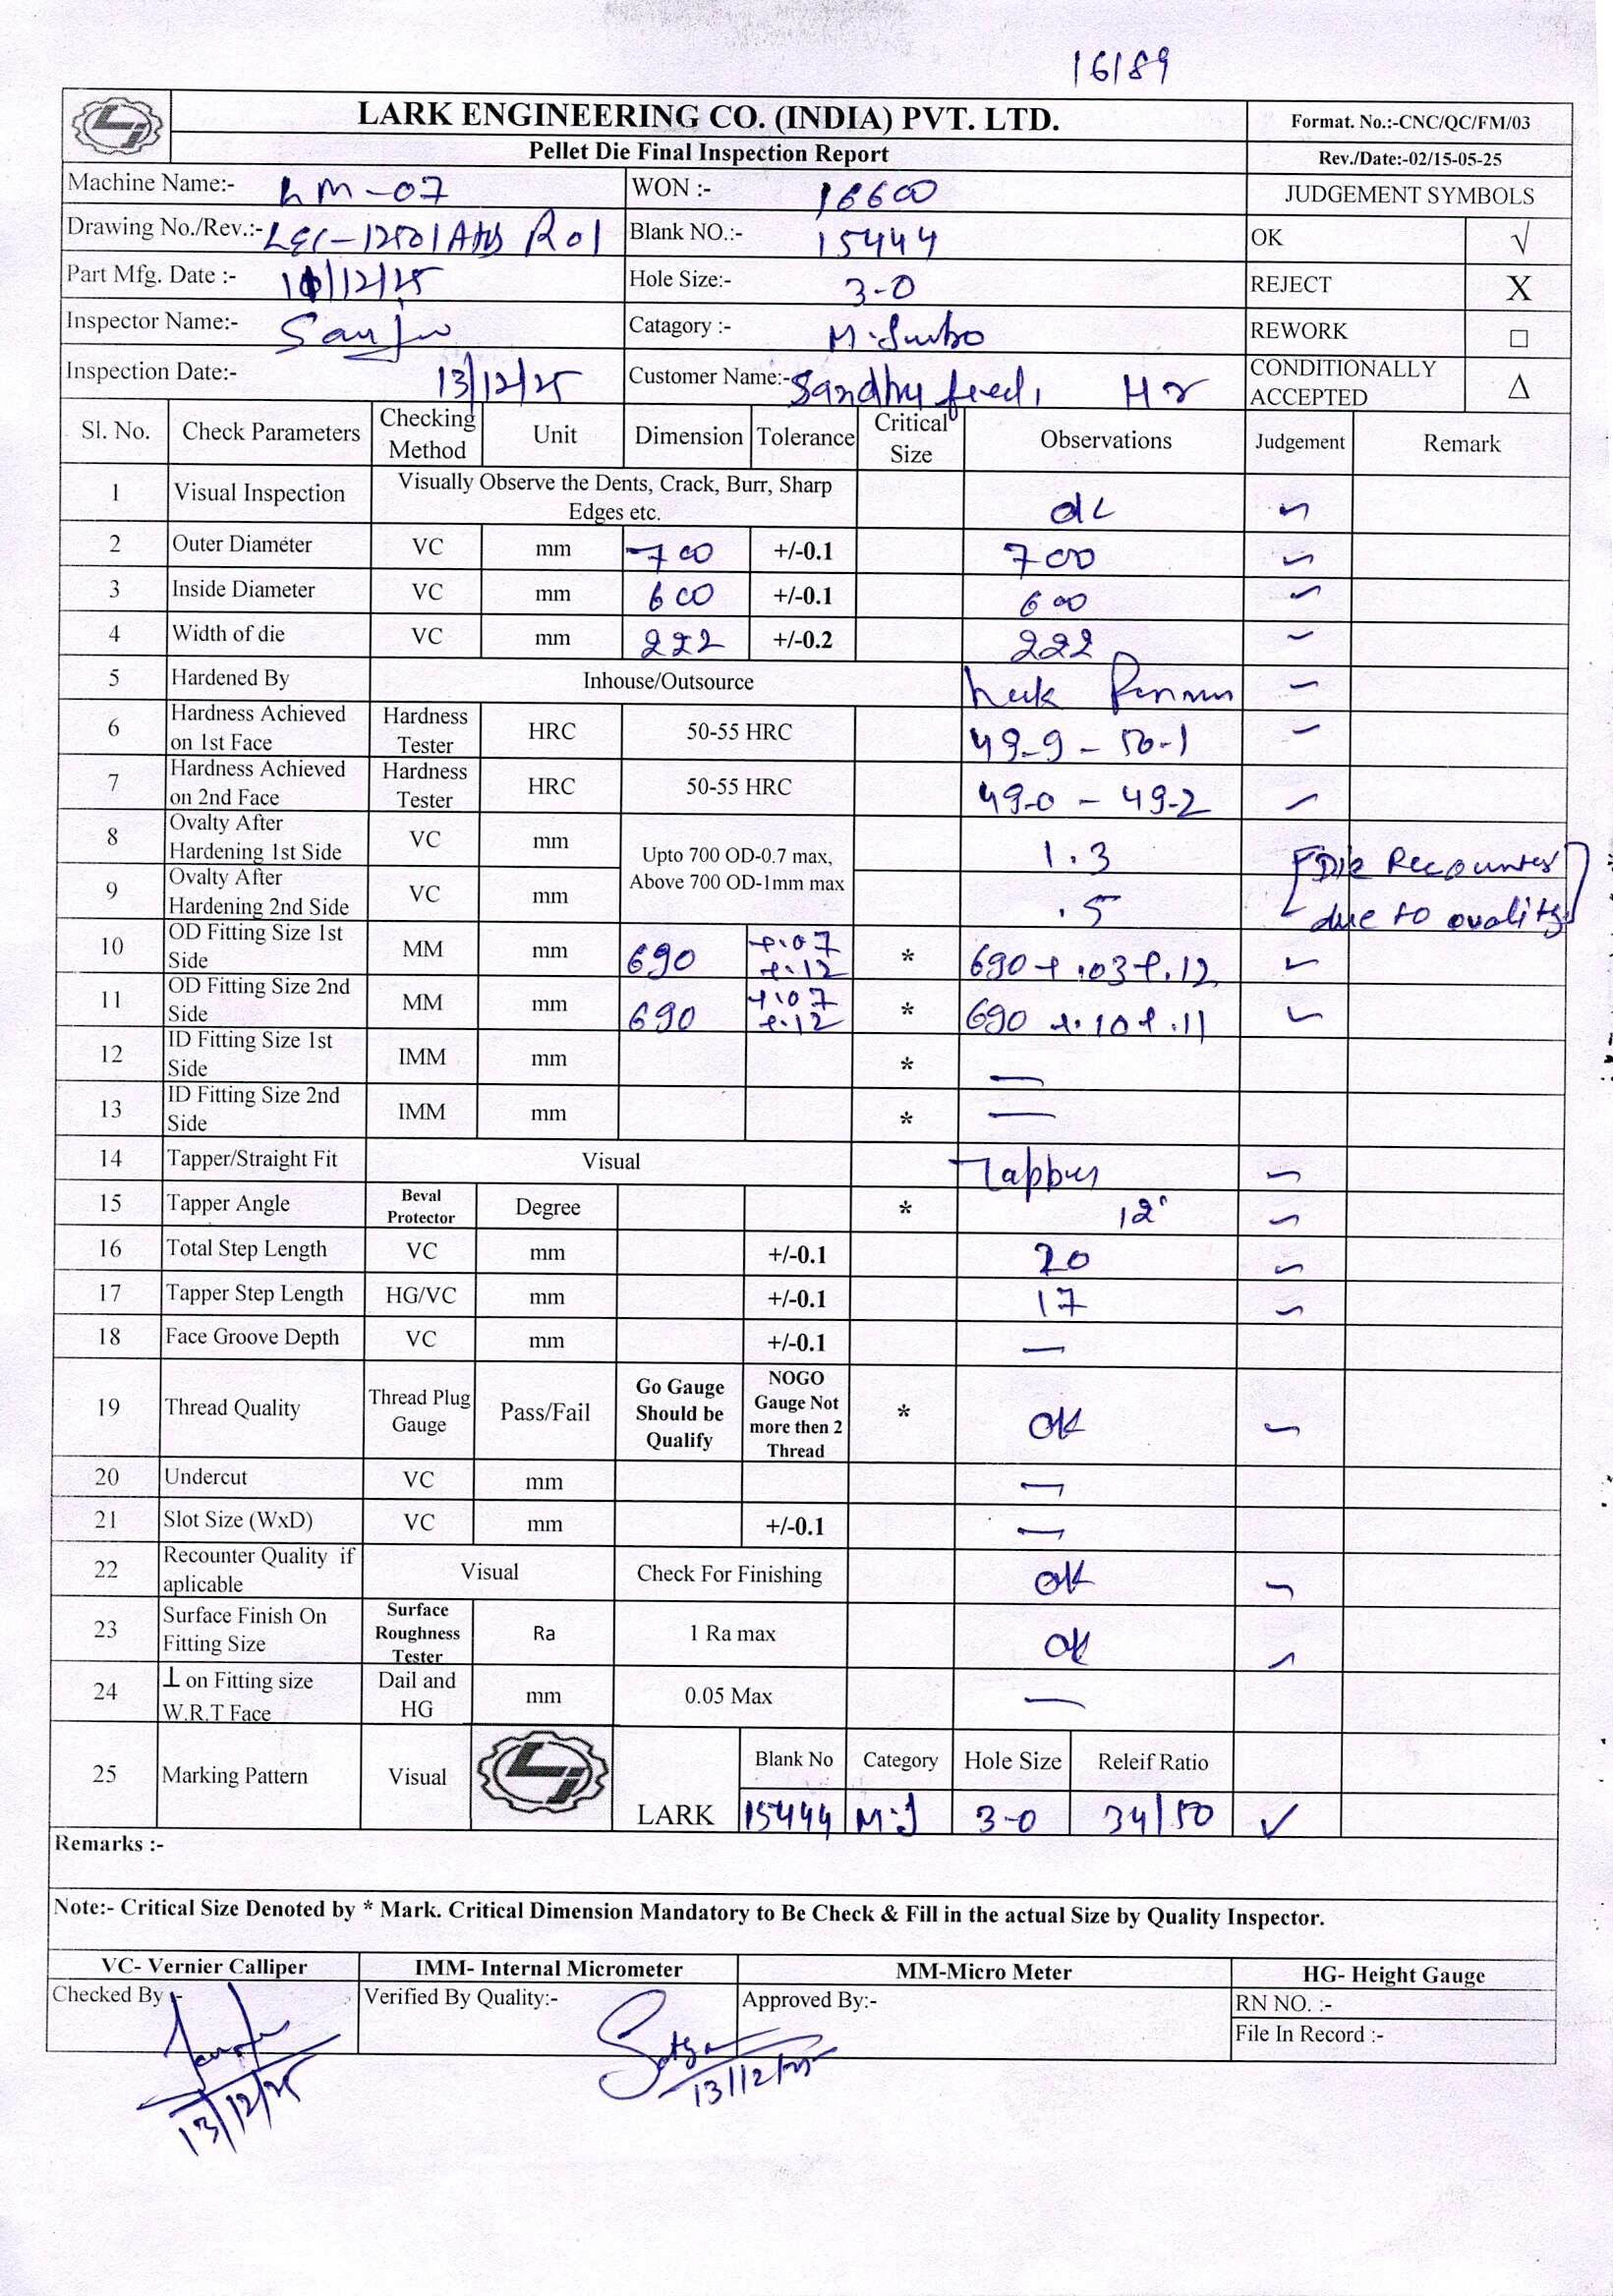 16189
LARK ENGINEERING CO. (INDIA) PVT. LTD.
Format. No.:-CNC/QC/FM/03
Pellet Die Final Inspection Report
Rev./Date:-02/15-05-25
Machine Name:- LM-07 WON :- 16600 JUDGEMENT SYMBOLS
Drawing No./Rev.:- R01 Blank NO.:- 15444 OK √
Part Mfg. Date :- /12/25 Hole Size:- 3-0 REJECT X
Inspector Name:- Sanju Catagory :- REWORK □
Inspection Date:- 13/12/25 Customer Name:- Sandhu feed, Hr CONDITIONALLY ACCEPTED Δ
Sl. No. Check Parameters Checking Method Unit Dimension Tolerance Critical Size Observations Judgement Remark
1 Visual Inspection Visually Observe the Dents, Crack, Burr, Sharp Edges etc. ok
2 Outer Diameter VC mm 700 +/-0.1 700
3 Inside Diameter VC mm 600 +/-0.1 600
4 Width of die VC mm 222 +/-0.2 222
5 Hardened By Inhouse/Outsource
6 Hardness Achieved on 1st Face Hardness Tester HRC 50-55 HRC 49-9 - 50-1
7 Hardness Achieved on 2nd Face Hardness Tester HRC 50-55 HRC 49-0 - 49-2
8 Ovalty After Hardening 1st Side VC mm Upto 700 OD-0.7 max, Above 700 OD-1mm max 1.3 Die Recounter
9 Ovalty After Hardening 2nd Side VC mm .5 due to ovality
10 OD Fitting Size 1st Side MM mm 690 +.07 +.12 * 690 +.03 +.12 ✓
11 OD Fitting Size 2nd Side MM mm 690 +.07 +.12 * 690 +.10 +.11 ✓
12 ID Fitting Size 1st Side IMM mm * —
13 ID Fitting Size 2nd Side IMM mm * —
14 Tapper/Straight Fit Visual Tapper
15 Tapper Angle Beval Protector Degree * 12°
16 Total Step Length VC mm +/-0.1 20
17 Tapper Step Length HG/VC mm +/-0.1 17
18 Face Groove Depth VC mm +/-0.1 —
19 Thread Quality Thread Plug Gauge Pass/Fail Go Gauge Should be Qualify NOGO Gauge Not more then 2 Thread * OK
20 Undercut VC mm —
21 Slot Size (WxD) VC mm +/-0.1 —
22 Recounter Quality if aplicable Visual Check For Finishing OK
23 Surface Finish On Fitting Size Surface Roughness Tester Ra 1 Ra max OK
24 ⊥ on Fitting size W.R.T Face Dail and HG mm 0.05 Max —
25 Marking Pattern Visual LARK Blank No Category Hole Size Releif Ratio
15444 M.J 3-0 34/50 ✓
Remarks :-
Note:- Critical Size Denoted by * Mark. Critical Dimension Mandatory to Be Check & Fill in the actual Size by Quality Inspector.
VC- Vernier Calliper IMM- Internal Micrometer MM-Micro Meter HG- Height Gauge
Checked By :- Verified By Quality:- Approved By:- RN NO. :-
File In Record :-
13/12/25 13/12/25